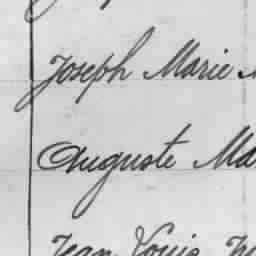 Joseph Marie
Auguste Ma
Jean Louis